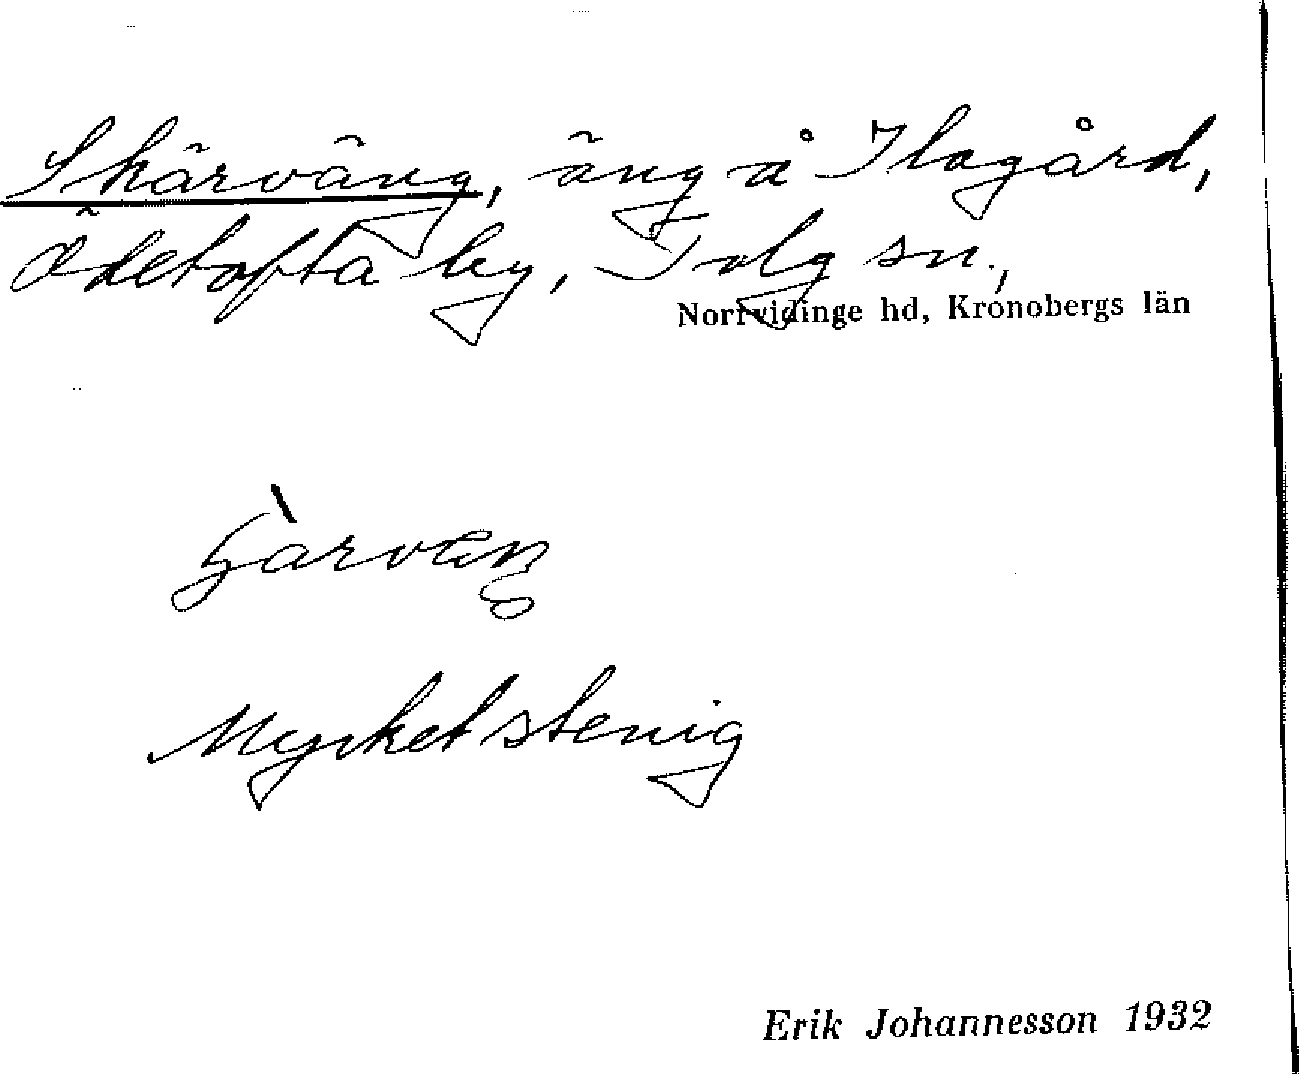 Skärväng, äng å Ilagård,
Ödetofta by, Tolg sn.,
Norrvidinge hd, Kronobergs län
Mycket stenig
Erik Johannesson 1932